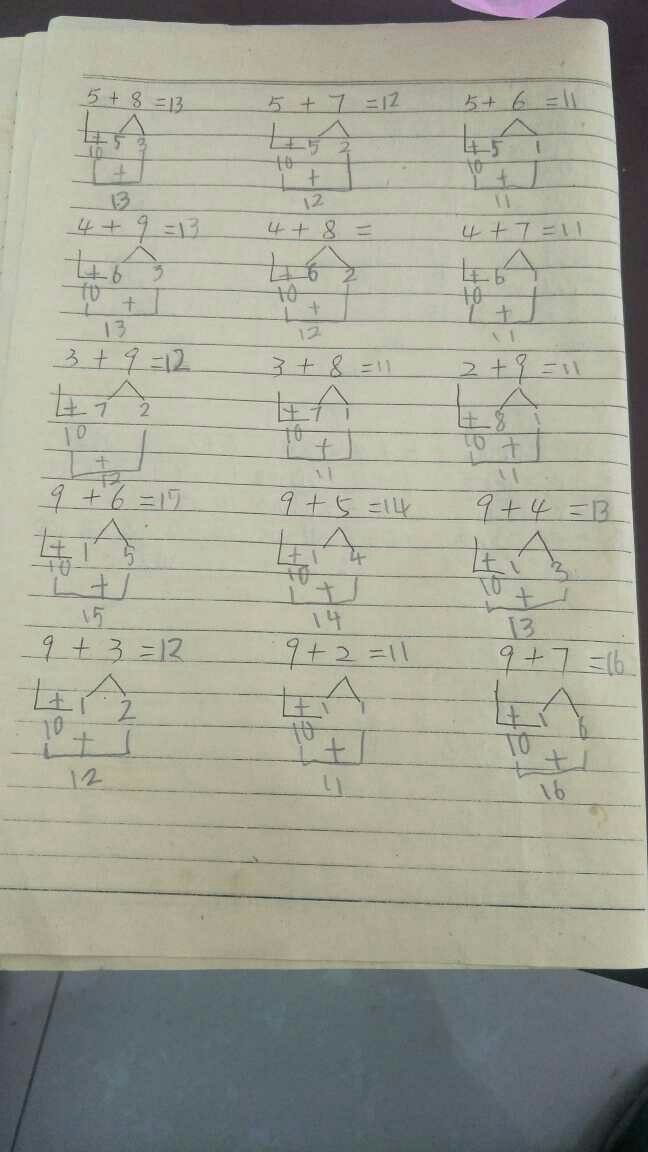 5 + 8 = 13 5 + 7 = 12 5 + 6 = 11
+ 5 3 + 5 2 + 5 1
10 10 10
+ + +
13 12 11
4 + 9 = 13 4 + 8 = 4 + 7 = 11
+ 6 3 + 6 2 + 6 1
10 10 10
+ + +
13 12 11
3 + 9 = 12 3 + 8 = 11 2 + 9 = 11
+ 7 2 + 7 1 + 8 1
10 10 10
+ + +
12 11 11
9 + 6 = 15 9 + 5 = 14 9 + 4 = 13
+ 1 5 + 1 4 + 1 3
10 10 10
+ + +
15 14 13
9 + 3 = 12 9 + 2 = 11 9 + 7 = 16
+ 1 2 + 1 1 + 1 6
10 10 10
+ + +
12 11 16